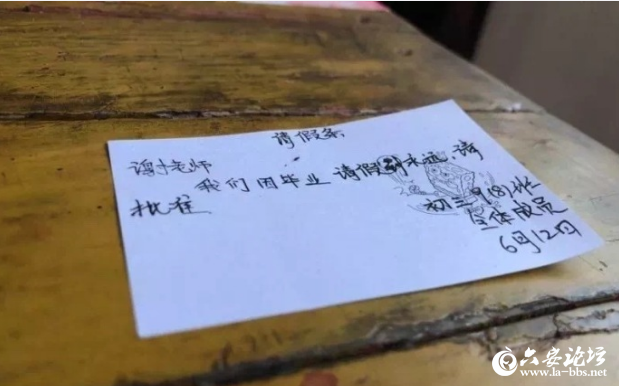 请假条
谢老师
我们因毕业请假到永远,请
批准
初三(18)班
全体成员
6月12日
六安论坛
www.la-bbs.net